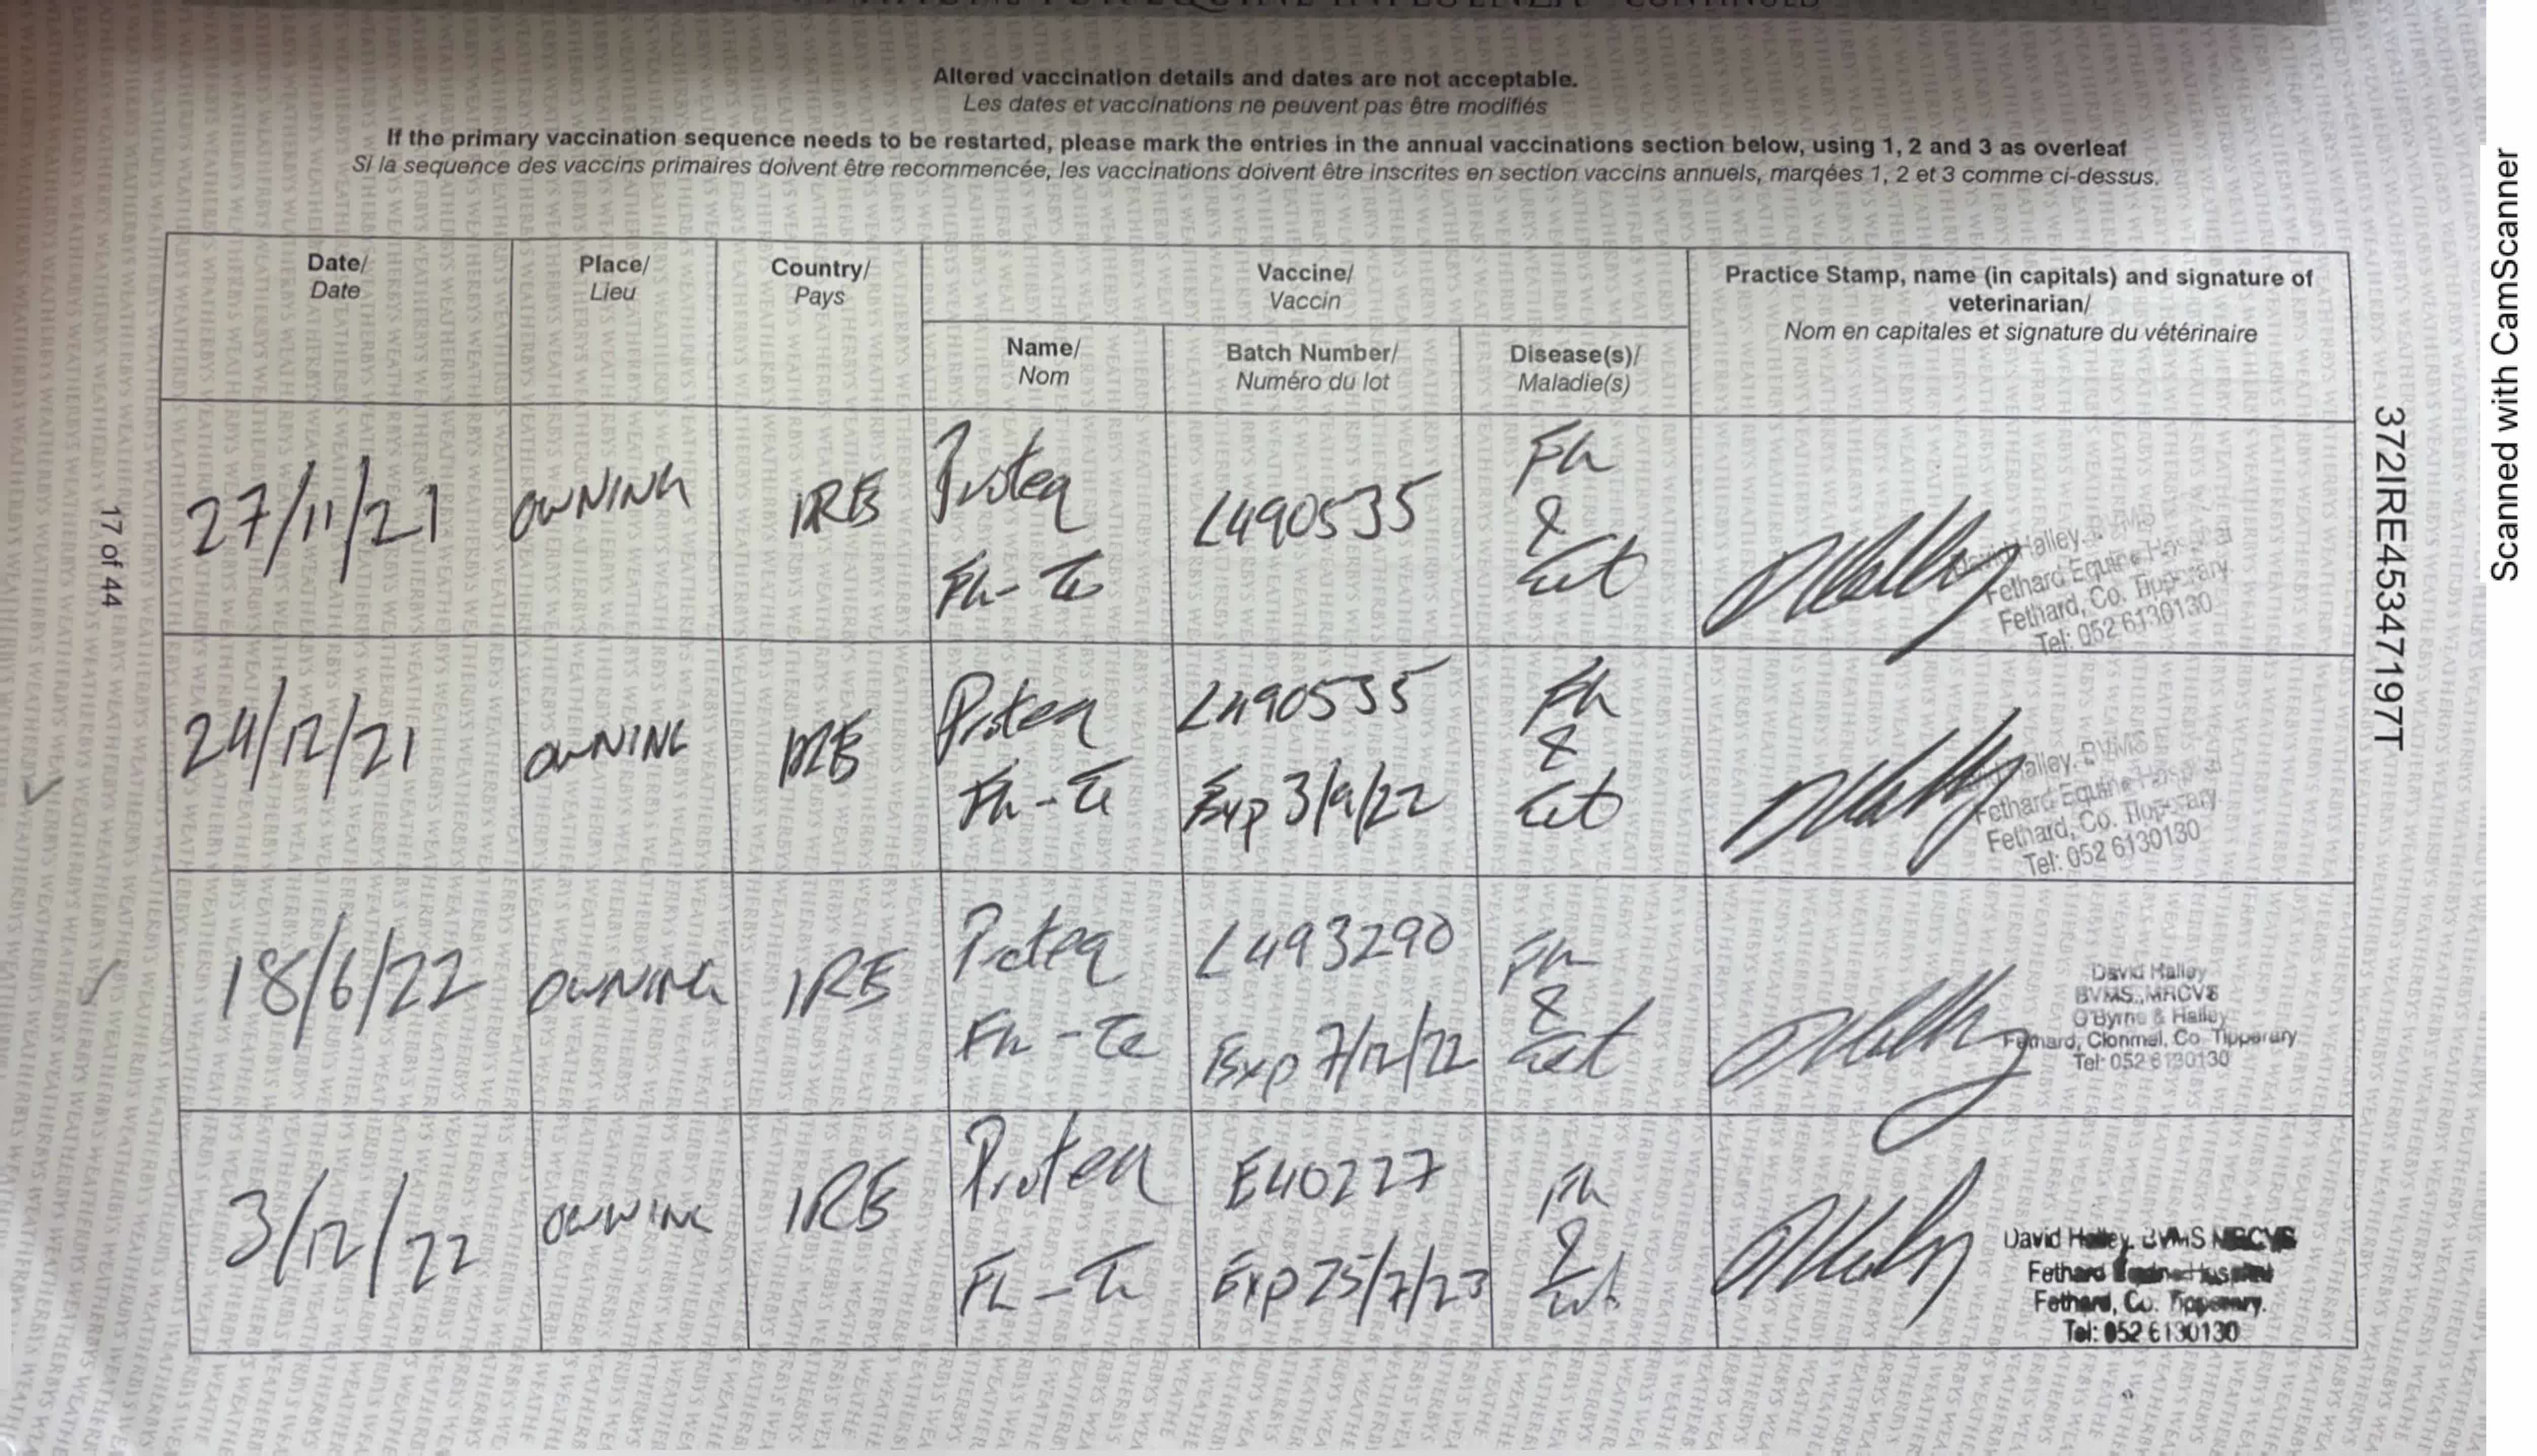 CONTINUED
Altered vaccination details and dates are not acceptable.
Les dates et vaccinations ne peuvent pas être modifiés
If the primary vaccination sequence needs to be restarted, please mark the entries in the annual vaccinations section below, using 1, 2 and 3 as overleaf
Si la sequence des vaccins primaires doivent être recommencée, les vaccinations doivent être inscrites en section vaccins annuels, marqées 1, 2 et 3 comme ci-dessus.
Date/ Date
Place/ Lieu
Country/ Pays
Vaccine/ Vaccin
Practice Stamp, name (in capitals) and signature of veterinarian/
Nom en capitales et signature du vétérinaire
Name/ Nom
Batch Number/ Numéro du lot
Disease(s)/ Maladie(s)
27/11/21 OWNING IRE Proteq L490535
Flu - Te
Flu & Tet
David Halley, BVMS
Fethard Equine Hospital
Fethard, Co. Tipperary
Tel: 052 6130130
24/12/21 OWNING IRE Proteq L490535
Flu - Te Exp 3/9/22
Flu & Tet
David Halley, BVMS
Fethard Equine Hospital
Fethard, Co. Tipperary
Tel: 052 6130130
18/6/22 OWNING IRE Proteq L493290
Flu - Te Exp 7/12/22
Flu & Tet
David Halley
BVMS, MRCVS
O'Byrne & Halley
Fethard, Clonmel, Co Tipperary
Tel: 052 6130130
3/12/22 OWNING IRE Proteq E40227
Flu - Te Exp 25/7/23
Flu & Tet
David Halley, BVMS MRCVS
Fethard Equine Hospital
Fethard, Co. Tipperary.
Tel: 052 6130130
17 of 44
372IRE45347197T
Scanned with CamScanner